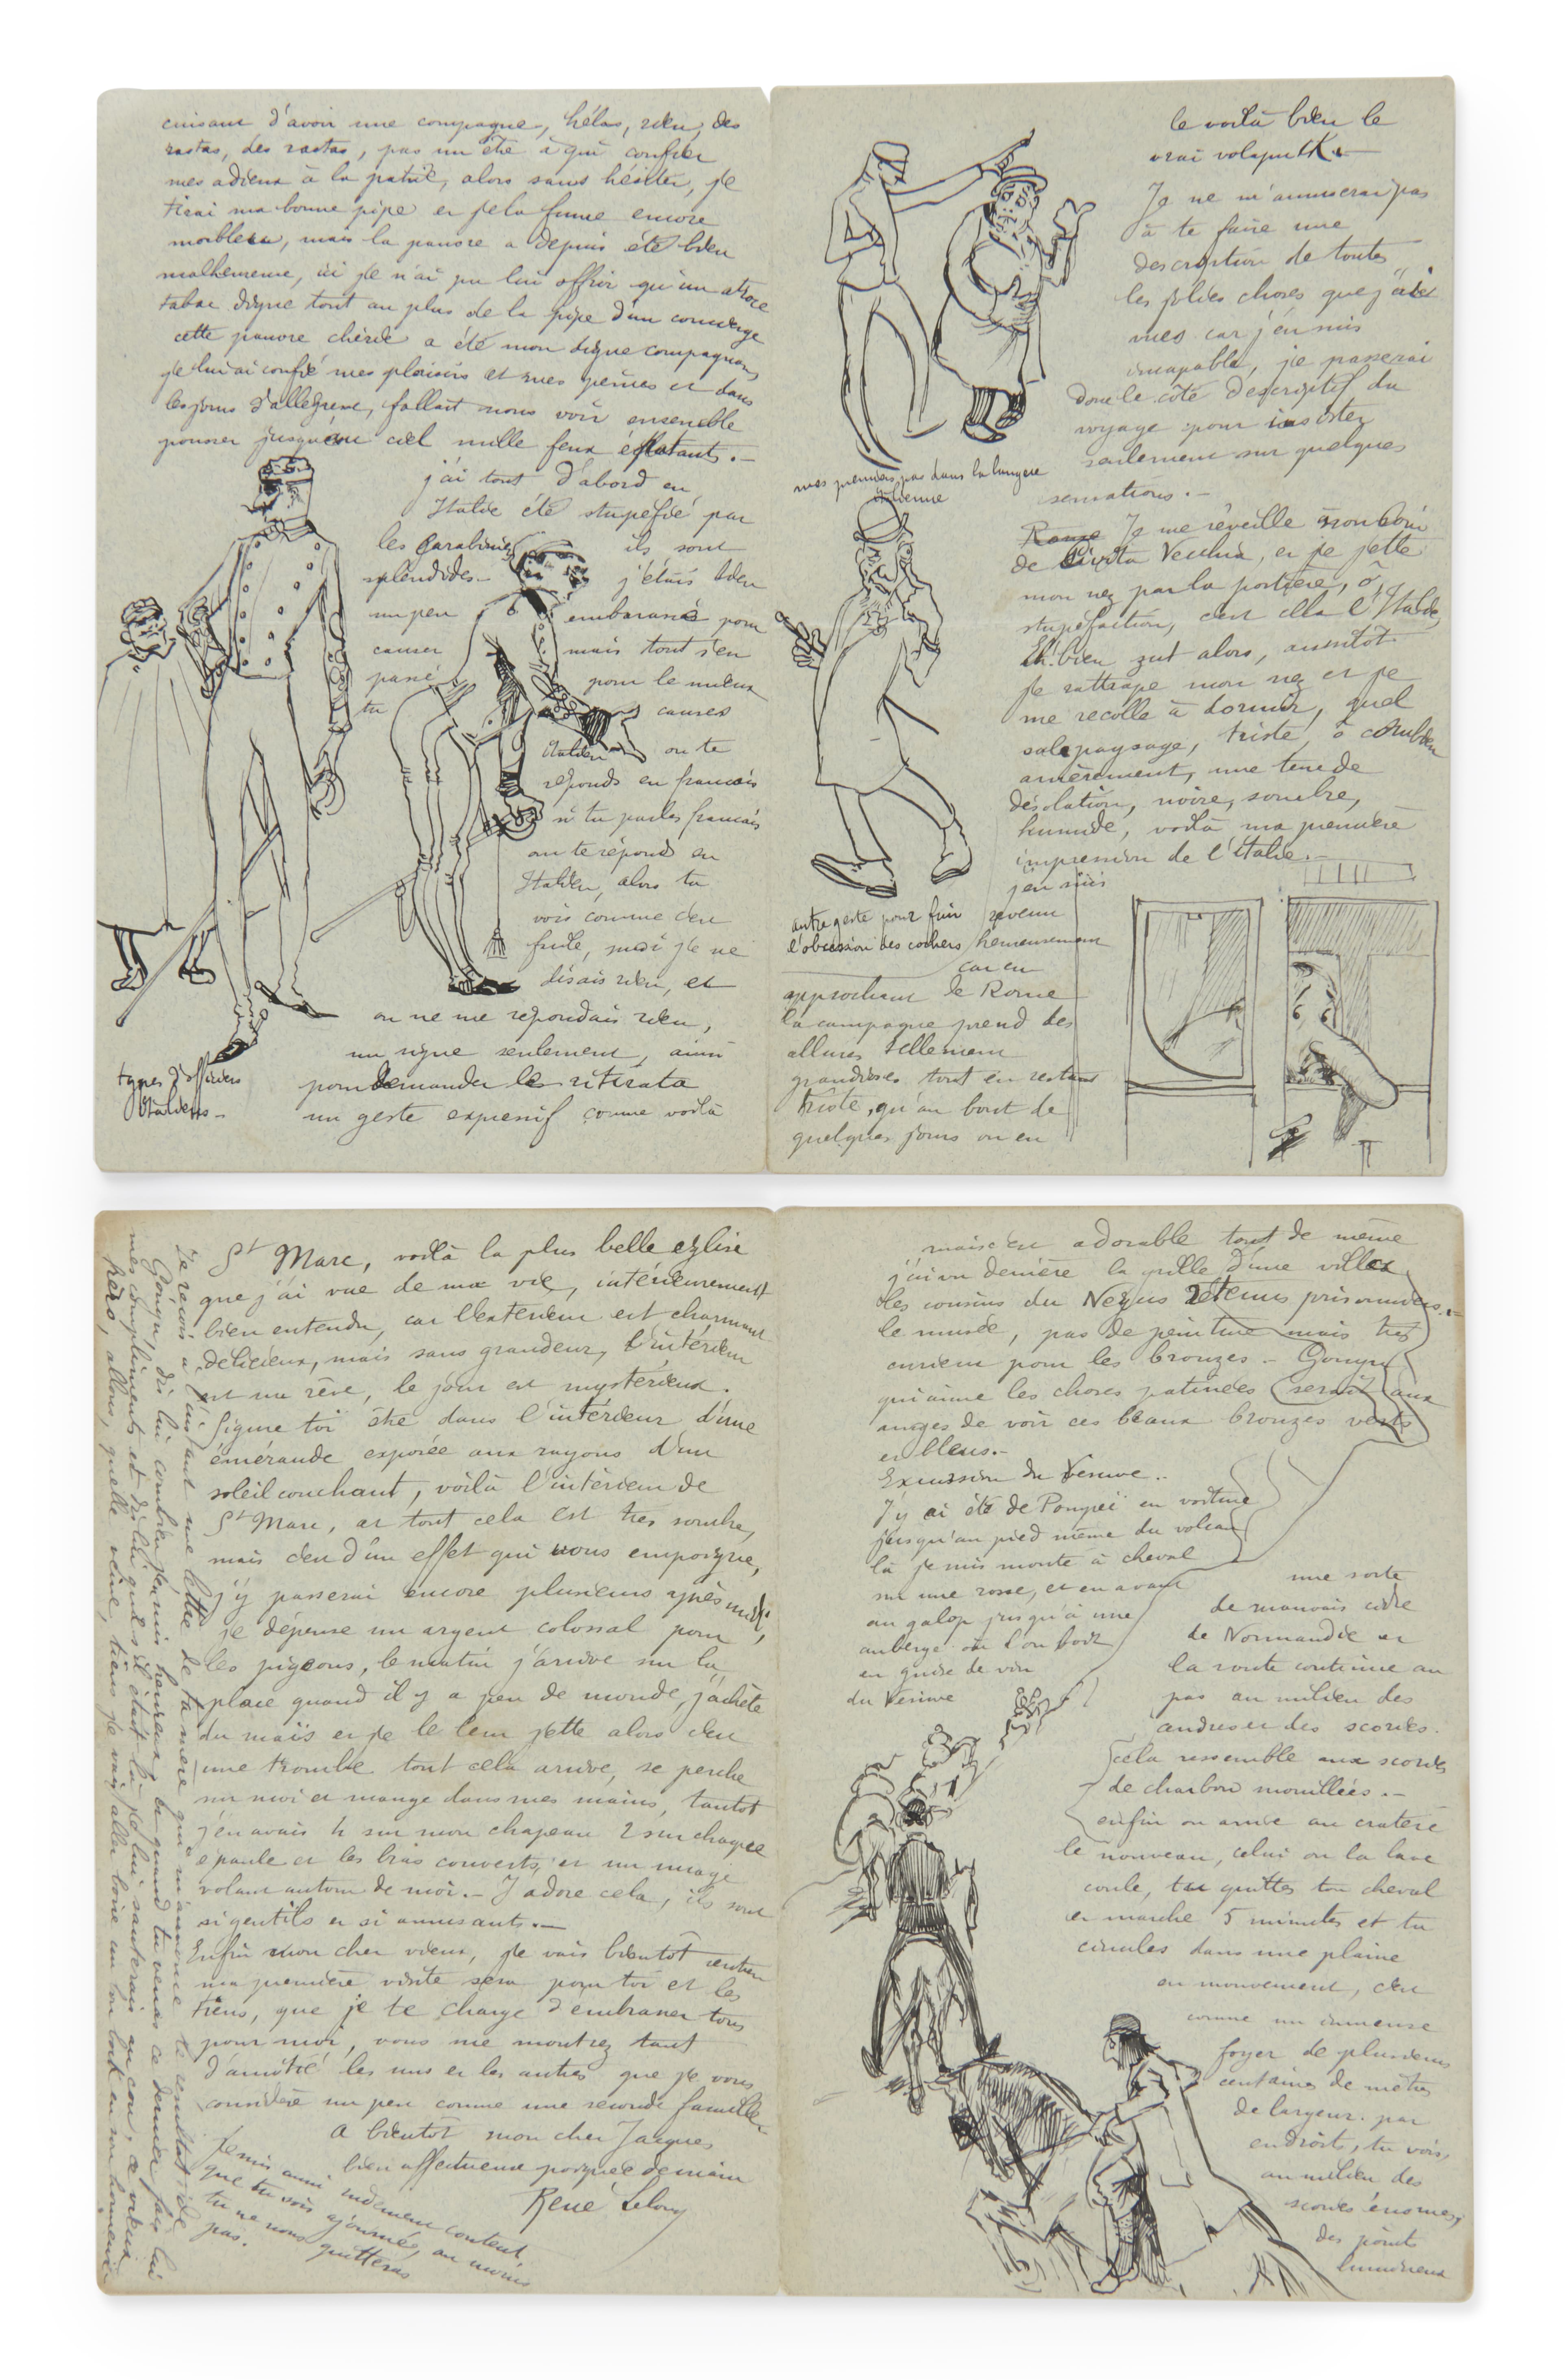 cuisant d'avoir une compagne, hélas, rien, des
rastas, des rastas, pas un être à qui confier
mes adieux à la patrie, alors sans hésiter, je
tirai ma bonne pipe et je la fume encore
morbleu, mais la pauvre a depuis été bien
malheureuse, ici je n'ai pu lui offrir qu'un atroce
tabac digne tout au plus de la pipe d'un concierge
cette pauvre chérie a été mon digne compagnon,
je lui ai confié mes plaisirs et mes peines et dans
les jours d'allégresse, fallait nous voir ensemble
pousser jusqu'au ciel mille feux éclatants. —
j'ai tout d'abord en
Italie été stupéfié par
les Carabiniers ils sont
splendides — j'étais bien
un peu embarassé pour
causer mais tout s'en
passé pour le mieux
tu causes
Italien on te
réponds en français
si tu parles français
on te répond en
Italien, alors tu
vois comme c'est
facile, moi je ne
disais rien, et
on ne me répondais rien,
un signe seulement, ainsi
pour demander le ritirata
un geste expressif comme voilà
types d'officiers
Italiens —
le voilà bien le
vrai volapuKK. —
Je ne m'amuserai pas
à te faire une
description de toutes
les jolies choses que j'ai
vues car j'en suis
incapable, je passerai
donc le côté descriptif du
voyage pour insister
seulement sur quelques
sensations. —
mes premiers pas dans la langue
italienne
Rome Je me réveille non loin
de Civita Vecchia, et je jette
mon nez par la portière, ô
stupéfaction, c'est cela l'Italie,
Eh bien zut alors, aussitôt
je rattrape mon nez et je
me recolle à dormir, quel
sale paysage, triste, ô combien
amèrement, une terre de
désolation, noire, sombre,
humide, voilà ma première
impression de l'Italie. —
j'en suis
revenu
heureusement
car en
autre geste pour fuir
l'obsession des cochers
approchant de Rome
la campagne prend des
allures tellement
grandioses tout en restant
triste, qu'au bout de
quelques jours on en
St Marc, voilà la plus belle eglise
que j'ai vue de ma vie, intérieurement
bien entendu, car l'exterieur est charmant
délicieux, mais sans grandeur, l'intérieur
est un rêve, le jour est mystérieux.
figure toi être dans l'intérieur d'une
émeraude exposée aux rayons d'un
soleil couchant, voilà l'intérieur de
St Marc, et tout cela est très sombre,
mais c'est d'un effet qui vous empoigne,
j'y passerai encore plusieurs après midi,
je dépense un argent colossal pour
les pigeons, le matin j'arrive sur la
place quand il y a peu de monde, j'achète
du maïs et je le leur jette alors c'est
une trombe tout cela arrive, se perche
sur moi et mange dans mes mains, tantot
j'en avais 4 sur mon chapeau 2 sur chaque
epaule et les bras couverts, et un nuage
volant autour de moi. — J'adore cela, ils sont
si gentils et si amusants. —
Enfin mon cher vieux, je vais bientôt rentrer
ma première visite sera pour toi et les
tiens, que je te charge d'embrasser tous
pour moi, vous me montrez tant
d'amitié les uns et les autres que je vous
considère un peu comme une seconde famille
A bientôt mon cher Jacques
bien affectueuse poignée de main
René Lelong
Je suis aussi rudement content
que tu sois ajourné, au moins
tu ne nous quitteras
pas.
Je reçois à l'instant une lettre de ta mère qui m'annonce le resultat de
Gongu, dis lui combien j'en suis heureux, et quand tu verras ce dernier fais lui
mes compliments et dis lui que s'il était là je lui sauterais au cou, ce vieux
frère, allons, quelle veine, tiens je vais aller boire un bon bock en son honneur
mais c'est adorable tout de même
j'ai vu derrière la grille d'une villa
les cousins du Negus retenus prisonniers. —
le musée, pas de peinture mais très
curieux pour les bronzes. — Gongu
qui aime les choses patinées serait aux
anges de voir ces beaux bronzes verts
et bleus. —
Excursion du Vésuve..
J'y ai été de Pompeï en voiture
jusqu'au pied même du volcan
là je suis monté à cheval
sur une rosse, et en avant
au galop jusqu'à une
auberge où l'on boit
en guise de vin
du Vésuve
une sorte
de mauvais cidre
de Normandie et
la route continue au
pas au milieu des
cendres et des scories.
cela ressemble aux scories
de charbon mouillées. —
enfin on arrive au cratère
le nouveau, celui où la lave
coule, tu quittes ton cheval
et marche 5 minutes et tu
circules dans une plaine
en mouvement, c'est
comme un immense
foyer de plusieurs
centaines de mètres
de largeur. par
endroits, tu vois,
au milieu des
scories énormes,
des points
lumineux